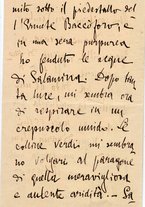 mito sotto il predestallo del
l'Ermete Baccoforo, è
in una sera purpurea
ho fenduto le acque
di Salamina. Dopo tan
ta luce, mi sembra ora
di respirare in un
crepuscolo immoto. Le
colline verdi mi sembra
no volgari al paragone
di quella meravigliosa
e aulente aridità. — La